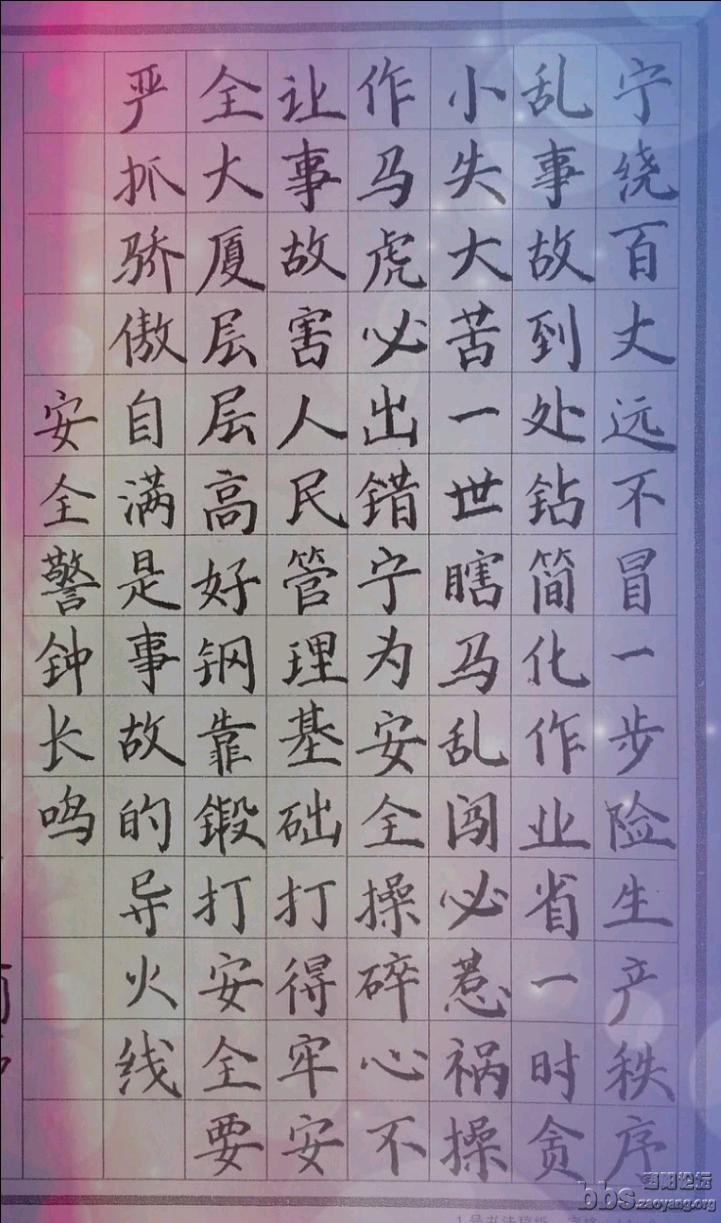 宁绕百丈远不冒一步险生产秩序
乱事故到处钻简化作业省一时贪
小失大苦一世瞎马乱闯必惹祸操
作马虎必出错宁为安全操碎心不
让事故害人民管理基础打得牢安
全大厦层层高好钢靠锻打安全要
严抓骄傲自满是事故的导火线
安全警钟长鸣
枣阳论坛
bbs.zaoyang.org